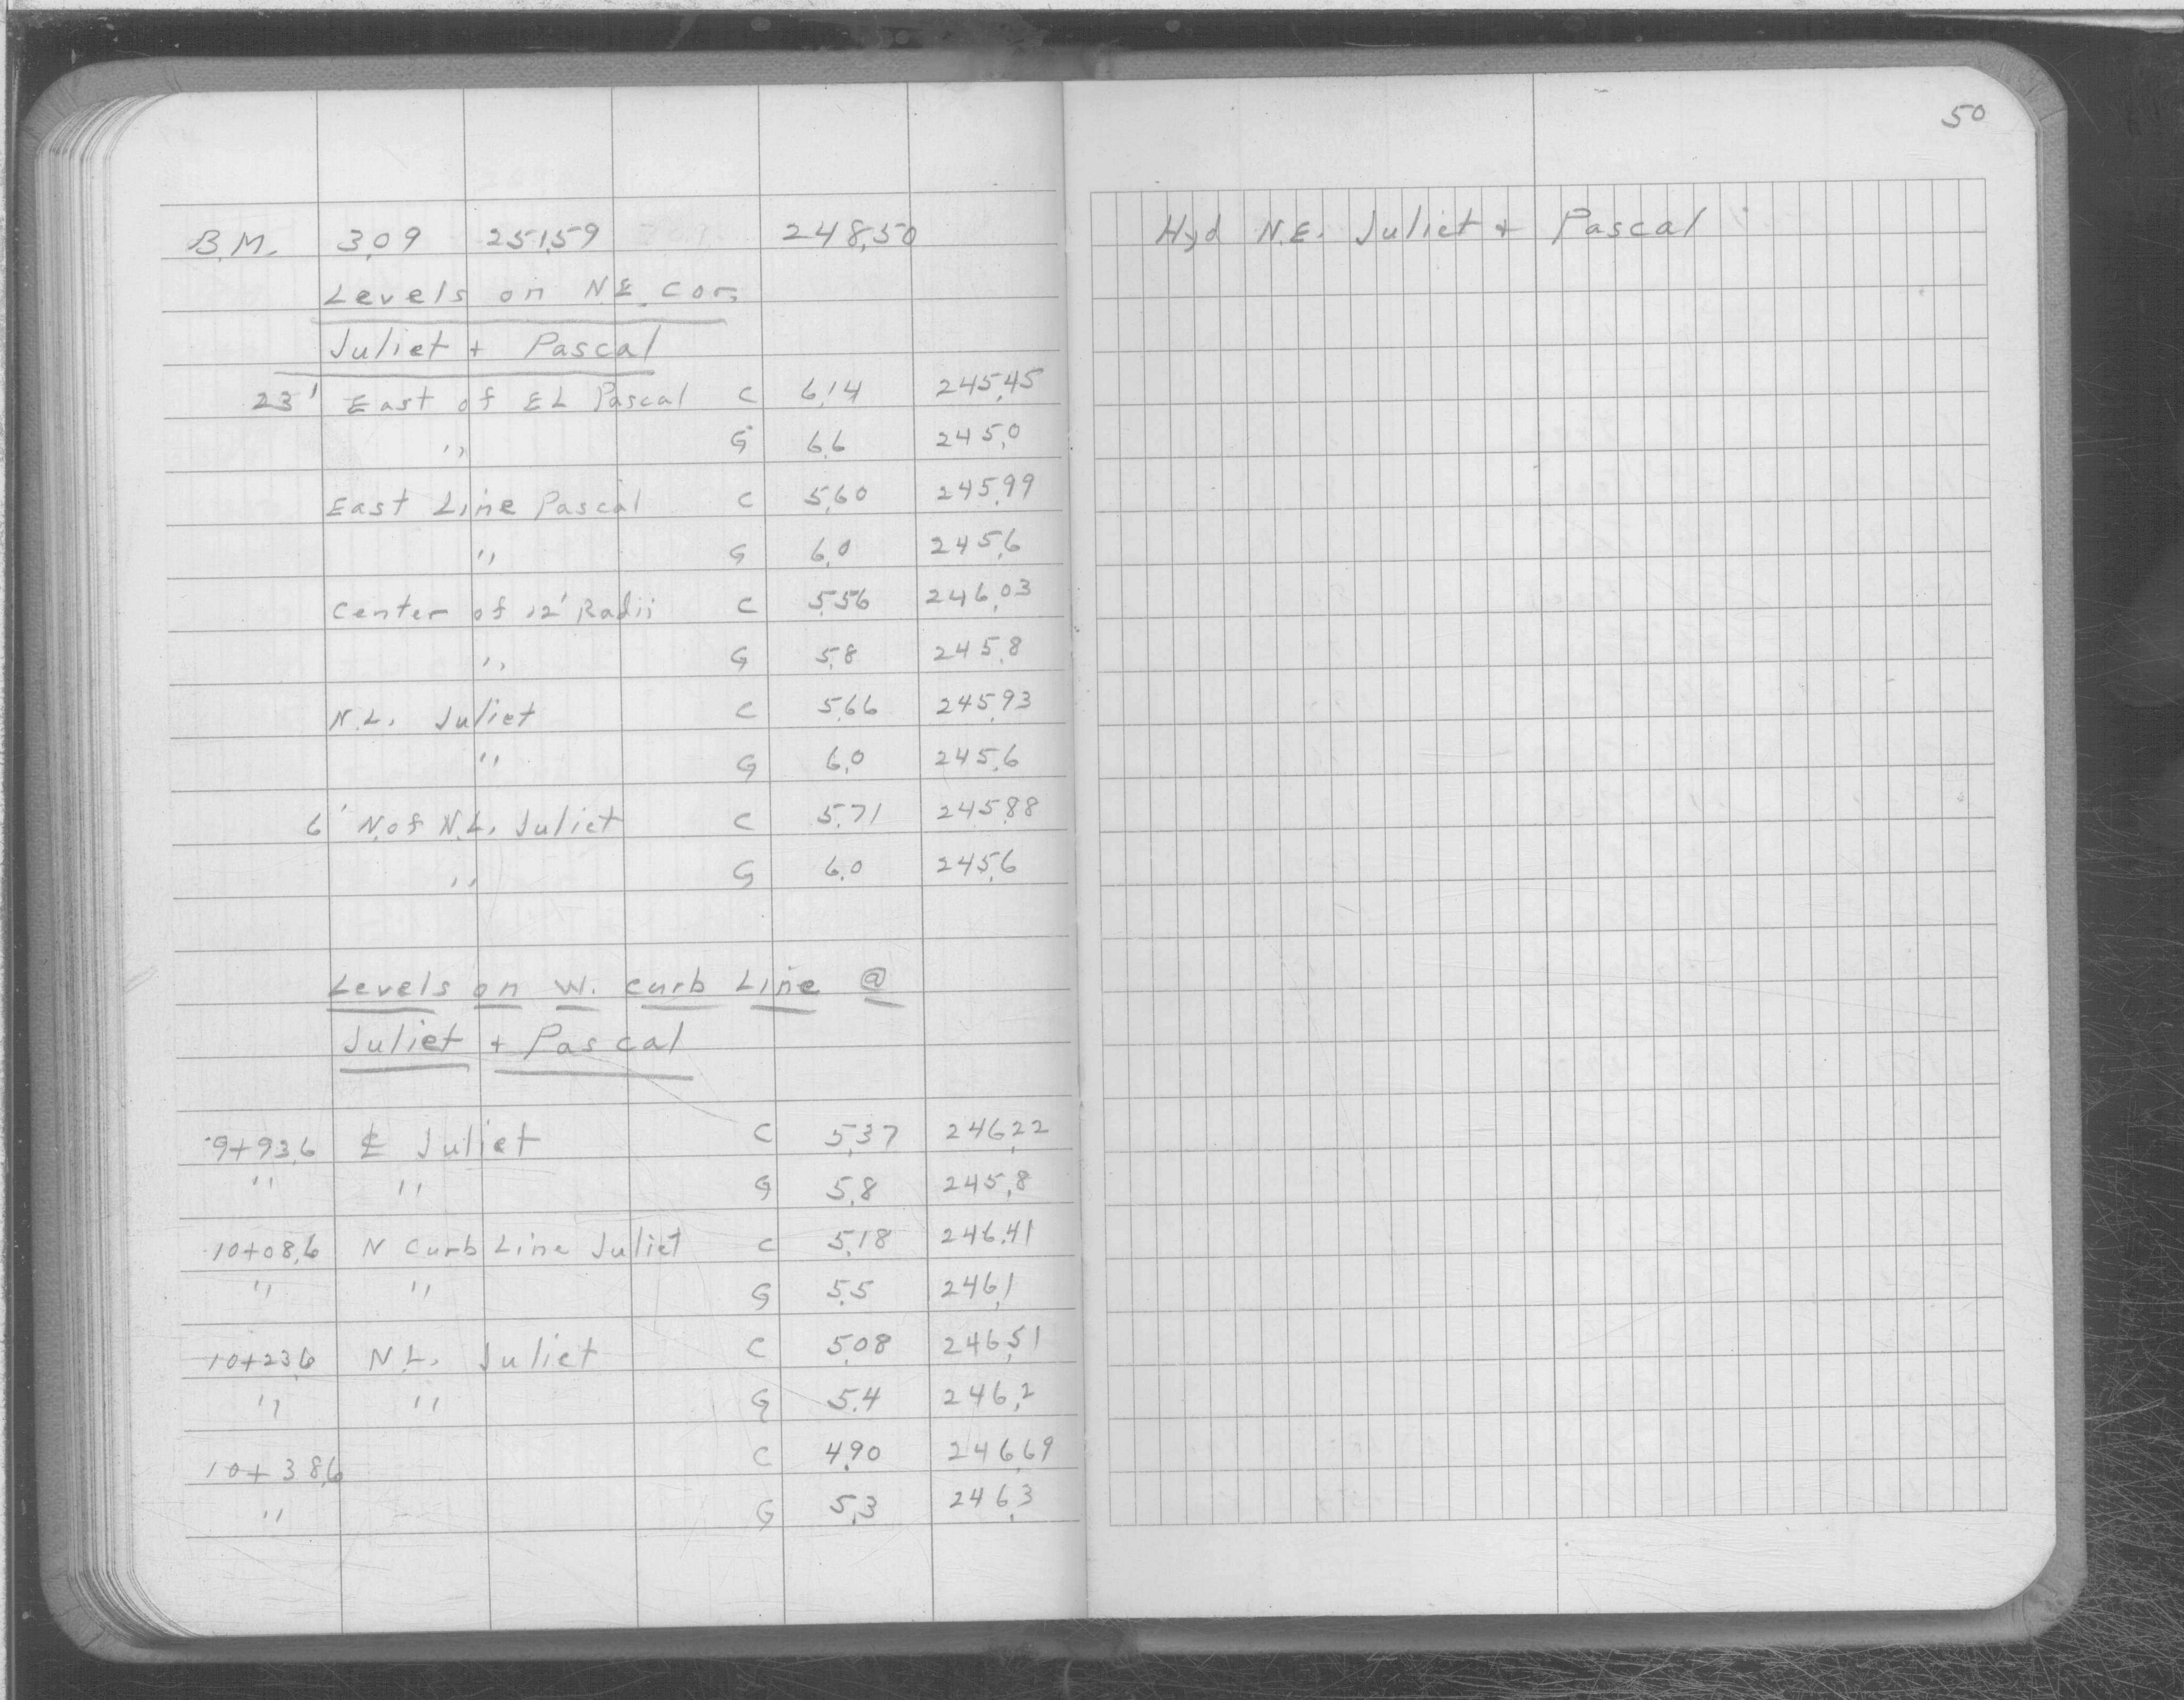 B.M. 3.09 251.59 248.50
Levels on NE. Cor.
Juliet + Pascal
23' East of EL Pascal C 6.14 245.45
" G 6.6 245.0
East Line Pascal C 5.60 245.99
" G 6.0 245.6
Center of 12' Radii C 5.56 246.03
" G 5.8 245.8
N.L. Juliet C 5.66 245.93
" G 6.0 245.6
6' N. of N.L. Juliet C 5.71 245.88
" G 6.0 245.6
Levels on W. Curb Line @
Juliet + Pascal
9+93.6 ℄ Juliet C 5.37 246.22
" " G 5.8 245.8
10+08.6 N Curb Line Juliet C 5.18 246.41
" " G 5.5 246.1
10+23.6 N.L. Juliet C 5.08 246.51
" " G 5.4 246.2
10+38.6 C 4.90 246.69
" G 5.3 246.3
50
Hyd N.E. Juliet + Pascal